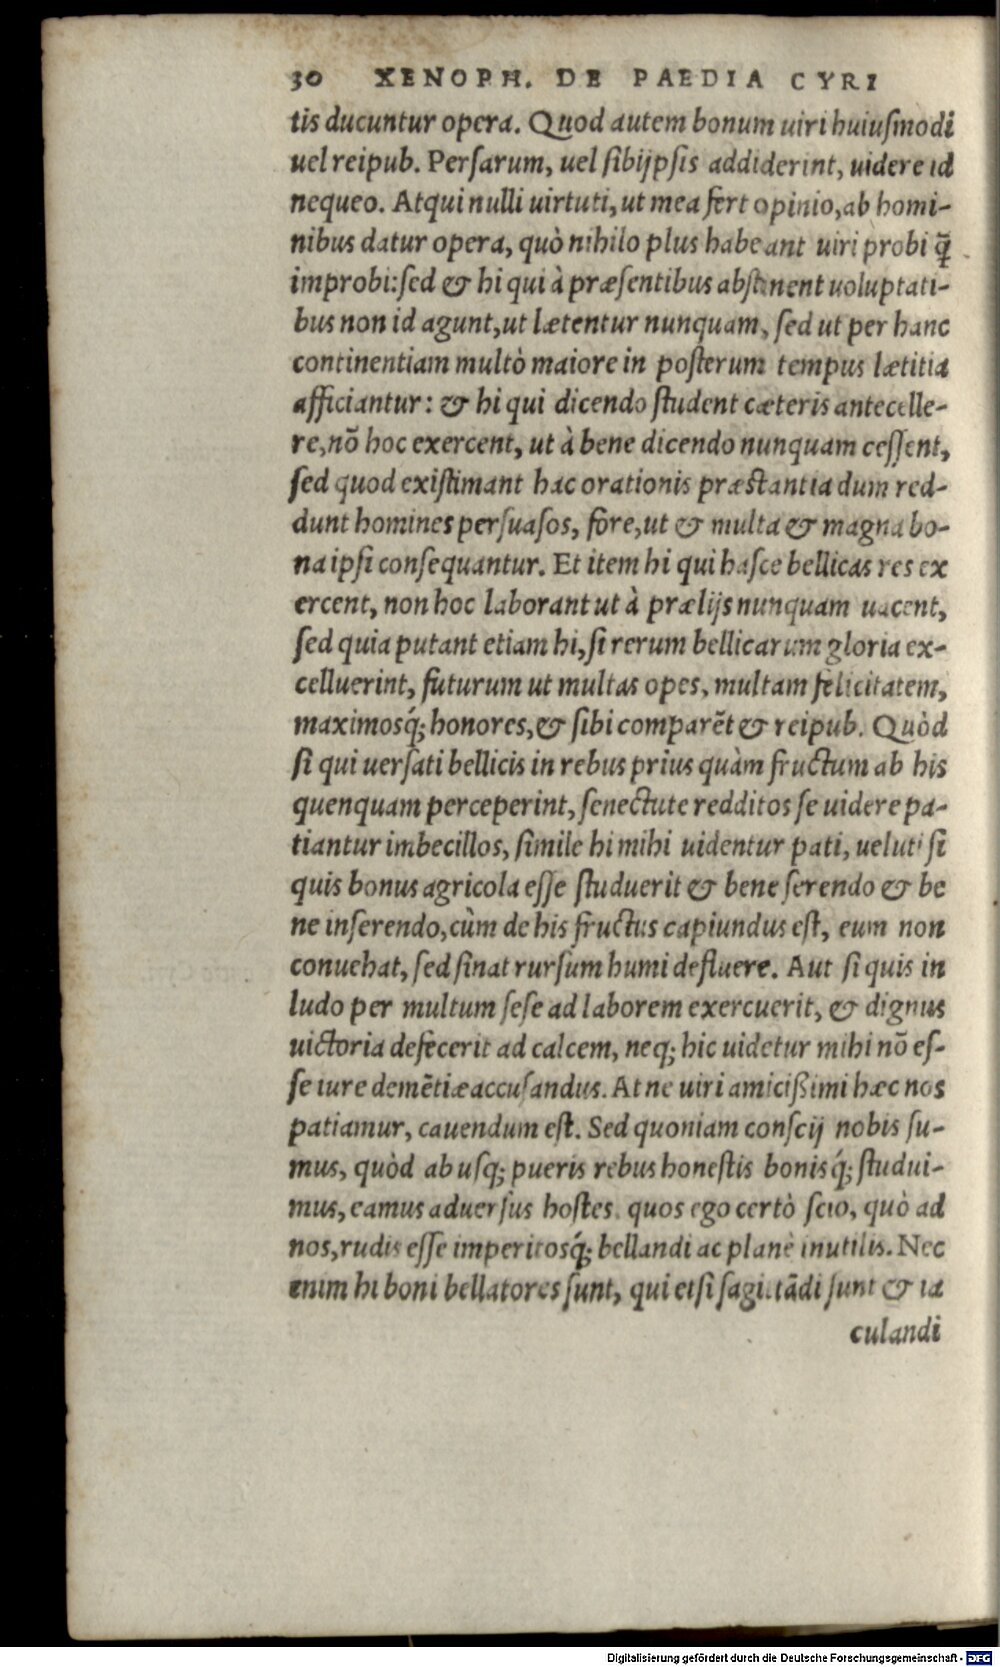 30 XENOPH. DE PAEDIA CYRI
tis ducuntur opera. Quod autem bonum uiri huiuſmodi
uel reipub. Perſarum, uel ſibijpſis addiderint, uidere id
nequeo. Atqui nulli uirtuti, ut mea fert opinio, ab homi-
nibus datur opera, quò nihilo plus habeant uiri probi q̃
improbi: ſed & hi qui à præſentibus abſtinent uoluptati-
bus non id agunt, ut lætentur nunquam, ſed ut per hanc
continentiam multò maiore in poſterum tempus lætitia
afficiantur: & hi qui dicendo ſtudent cæteris antecelle-
re, nõ hoc exercent, ut à bene dicendo nunquam ceſſent,
ſed quod exiſtimant hac orationis præstantia dum red-
dunt homines perſuaſos, fore, ut & multa & magna bo-
na ipſi conſequantur. Et item hi qui haſce bellicas res ex
ercent, non hoc laborant ut à prælijs nunquam uacent,
ſed quia putant etiam hi, ſi rerum bellicarum gloria ex-
celluerint, futurum ut multas opes, multam felicitatem,
maximosq́; honores, & ſibi comparẽt & reipub. Quòd
ſi qui uerſati bellicis in rebus prius quàm fructum ab his
quenquam perceperint, ſenectute redditos ſe uidere pa-
tiantur imbecillos, ſimile hi mihi uidentur pati, ueluti ſi
quis bonus agricola eſſe ſtuduerit & bene ſerendo & be
ne inſerendo, cùm de his fructus capiundus eſt, eum non
conuehat, ſed ſinat rurſum humi defluere. Aut ſi quis in
ludo per multum ſeſe ad laborem exercuerit, & dignus
uictoria defecerit ad calcem, neq; hic uidetur mihi nõ eſ-
ſe iure demẽtiæ accuſandus. At ne uiri amicißimi hæc nos
patiamur, cauendum eſt. Sed quoniam conſcij nobis ſu-
mus, quòd ab uſq; pueris rebus honeſtis bonisq́; ſtudui-
mus, eamus aduerſus hoſtes, quos ego certò ſcio, quò ad
nos, rudis eſſe imperitosq́; bellandi ac planè inutilis. Nec
enim hi boni bellatores ſunt, qui etſi ſagittãdi ſunt & ia
culandi
Digitalisierung gefördert durch die Deutsche Forschungsgemeinschaft - DFG